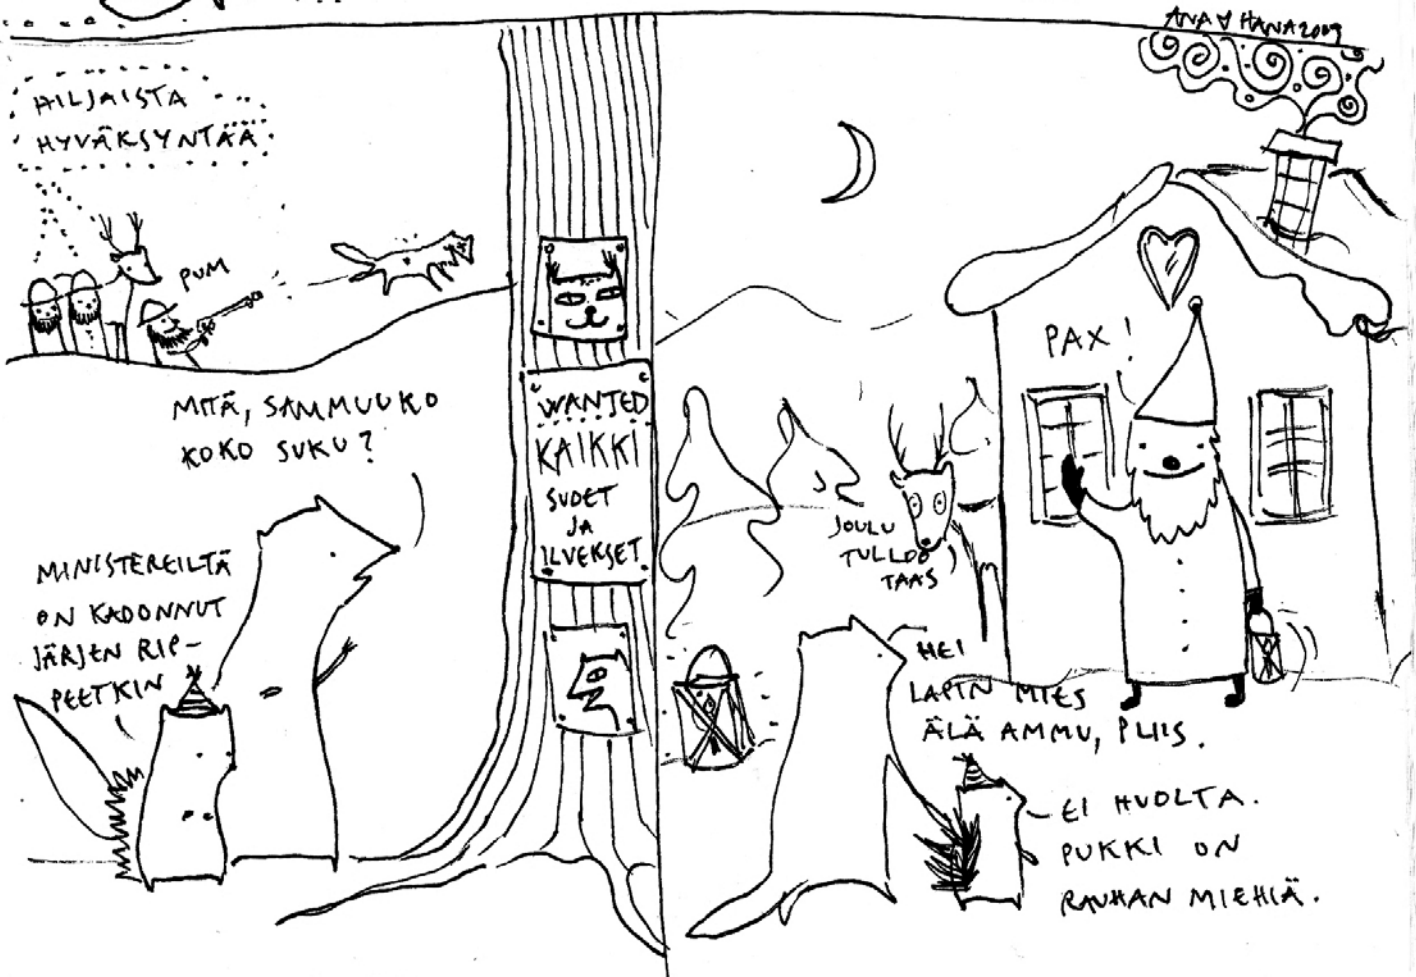 ANA & HANA 2009
HILJAISTA
HYVÄKSYNTÄÄ
PUM
MITÄ, SAMMUUKO
KOKO SUKU?
MINISTEREILTÄ
ON KADONNUT
JÄRJEN RIP-
PEETKIN
WANTED
KAIKKI
SUDET
JA
ILVEKSET
PAX!
JOULU
TULLOO
TAAS
HEI
LAPIN MIES
ÄLÄ AMMU, PLIIS.
EI HUOLTA.
PUKKI ON
RAUHAN MIEHIÄ.